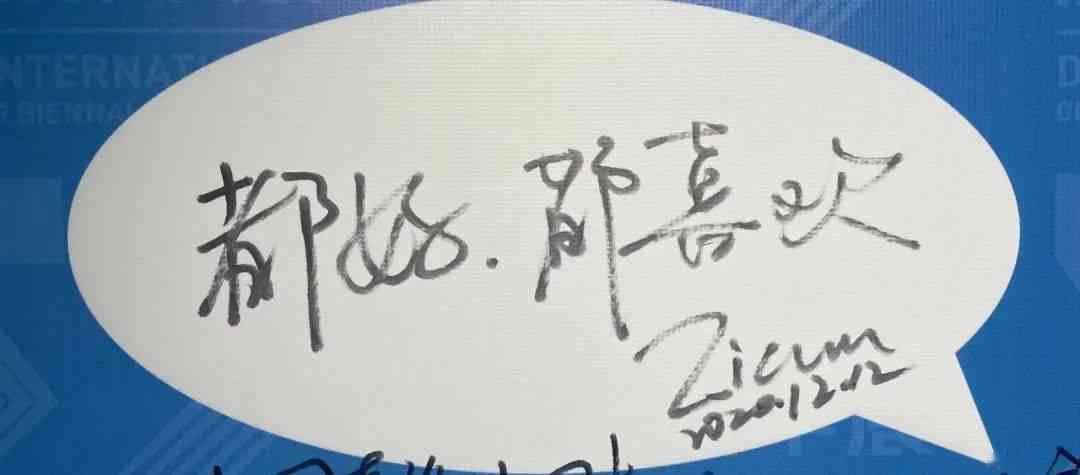 INTERNAT
BIENNA
都好.都喜欢
2020.12.12